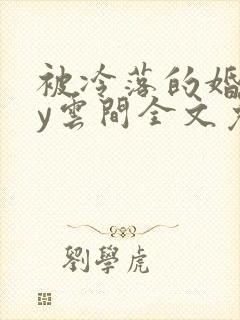 被冷落的婚
y雲間全文免
劉學虎